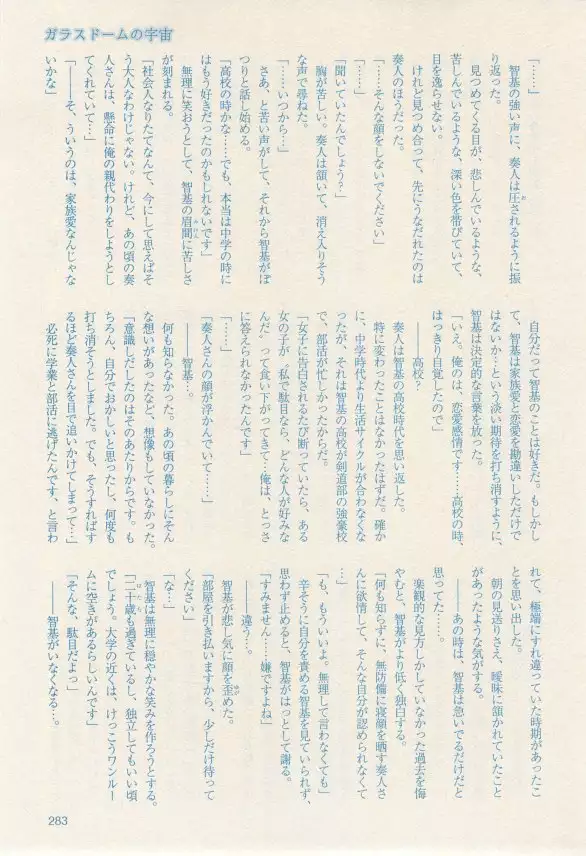 ガラスドームの宇宙
「……」
智基の強い声に、奏人は圧されるように振
り返った。
見つめてくる目が、悲しんでいるような、
苦しんでいるような、深い色を帯びていて、
目を逸らせない。
けれど見つめ合って、先にうなだれたのは
奏人のほうだった。
「……そんな顔をしないでください」
「……」
「聞いていたんでしょう？」
胸が苦しい。奏人は頷いて、消え入りそう
な声で尋ねた。
「……いつから…」
さあ、と苦い声がして、それから智基がぽ
つりと話し始める。
「高校の時かな……でも、本当は中学の時に
はもう好きだったのかもしれないです」
無理に笑おうとして、智基の眉間に苦しさ
が刻まれる。
「社会人なりたてなんて、今にして思えばそ
う大人なわけじゃない。けれど、あの頃の奏
人さんは、懸命に俺の親代わりをしようとし
てくれていて…」
「――そ、ういうのは、家族愛なんじゃな
いかな」
自分だって智基のことは好きだ。もしかし
て、智基は家族愛と恋愛を勘違いしただけで
はないか…という淡い期待を打ち消すように、
智基は決定的な言葉を放った。
「いえ。俺のは、恋愛感情です……高校の時、
はっきり自覚したので」
――高校？
奏人は智基の高校時代を思い返した。
特に変わったことはなかったはずだ。確か
に、中学時代より生活サイクルが合わなくな
ったが、それは智基の高校が剣道部の強豪校
で、部活が忙しかったからだ。
「女子に告白されるたび断っていたら、ある
女の子が、私で駄目なら、どんな人が好みな
んだ。って食い下がってきて…俺は、とっさ
に答えられなかったんです」
「……」
「奏人さんの顔が浮かんでいて……」
――智基…。
何も知らなかった。あの頃の暮らしにそん
な想いがあったなど、想像もしていなかった。
「意識しだしたのはそのあたりからです。も
ちろん、自分でおかしいと思ったし、何度も
打ち消そうとしました。でも、そうすればす
るほど奏人さんを目で追いかけてしまって…」
必死に学業と部活に逃げたんです、と言わ
れて、極端にすれ違っていた時期があったこ
とを思い出した。
朝の見送りさえ、曖昧に頷かれていたこと
があったような気がする。
――あの時は、智基は急いでるだけだと
思ってた……。
楽観的な見方しかしていなかった過去を悔
やむと、智基がより低く独白する。
「何も知らずに、無防備に寝顔を晒す奏人さ
んに欲情して、そんな自分が認められなくて
…」
「も、もういいよ。無理して言わなくても」
辛そうに自分を責める智基を見ていられず、
思わず止めると、智基がはっとして謝る。
「すみません……嫌ですよね」
――違う…。
智基が悲し気に顔を歪めた。
「部屋を引き払いますから、少しだけ待って
ください」
「な…」
智基は無理に穏やかな笑みを作ろうとする。
「二十歳も過ぎているし、独立してもいい頃
でしょう。大学の近くは、けっこうワンルー
ムに空きがあるらしいんです」
「そんな、駄目だよっ」
――智基がいなくなる…。
283